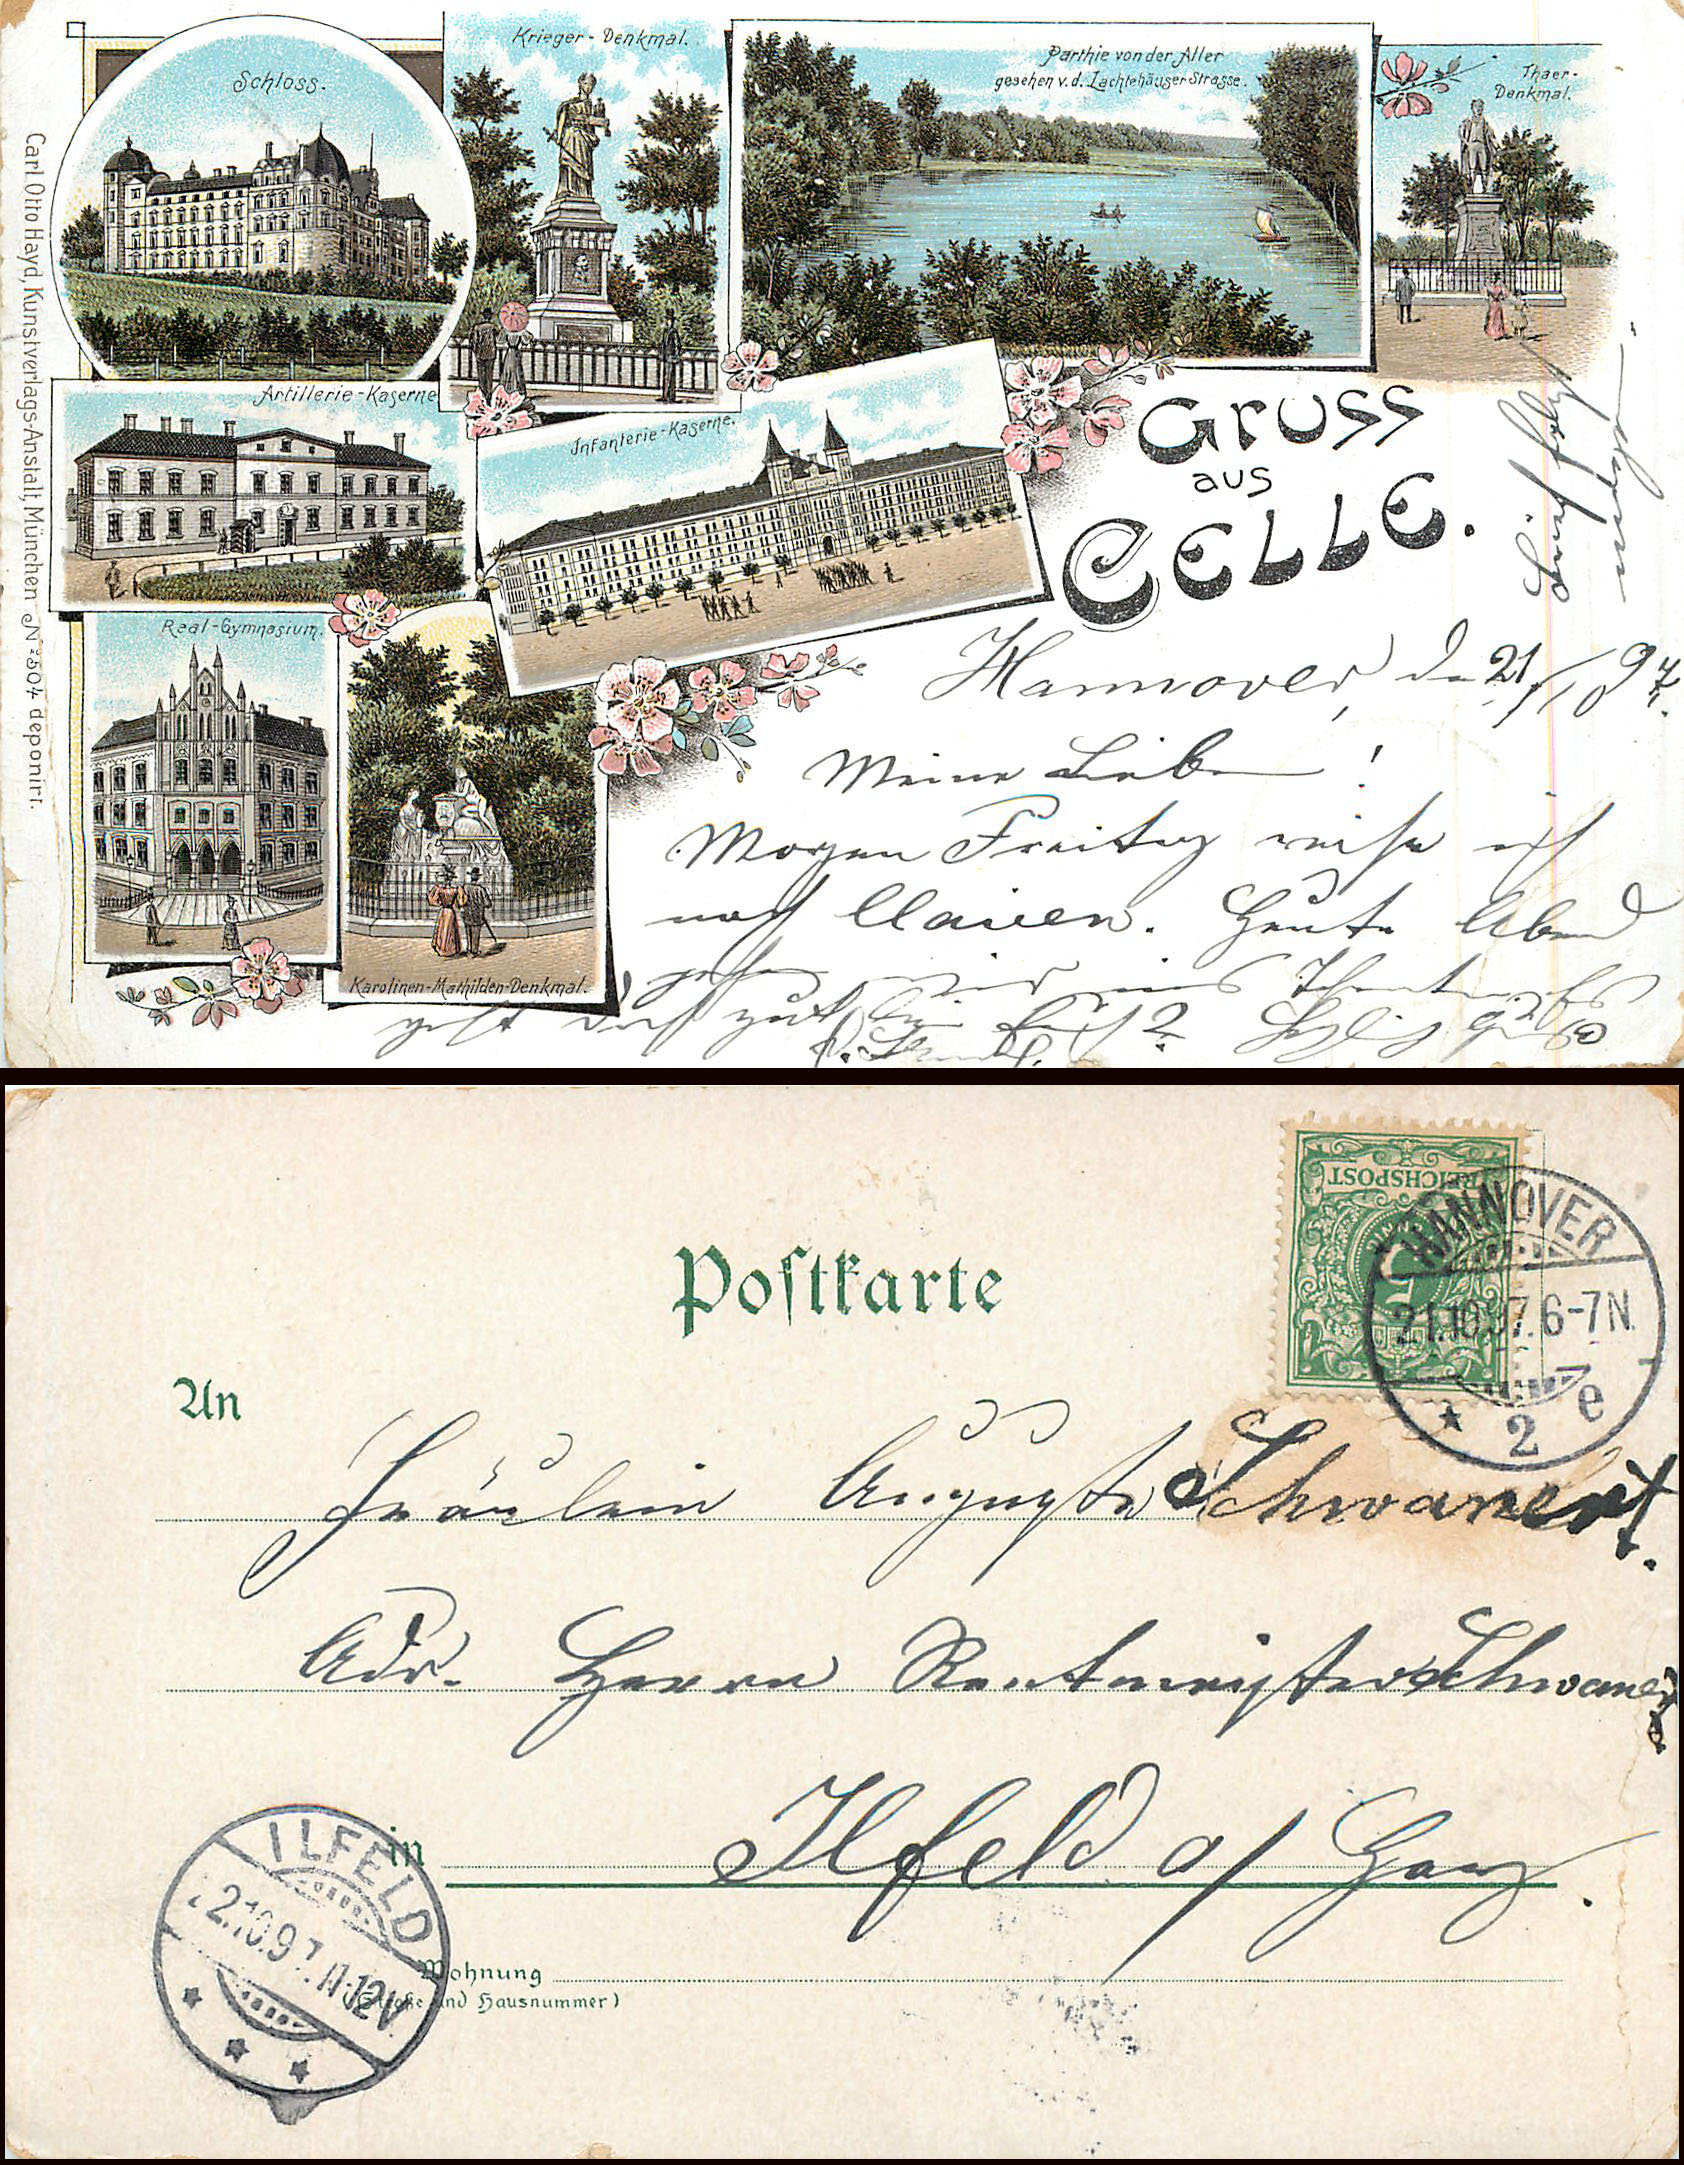 Schloss.
Krieger-Denkmal.
Parthie von der Aller
gesehen v. d. Lachtehäuser Strasse.
Thaer-
Denkmal.
Artillerie-Kaserne
Infanterie-Kaserne.
Real-Gymnasium.
Karolinen-Mathilden-Denkmal.
Carl Otto Hayd, Kunstverlags-Anstalt, München No 504 deponirt.
Gruss
aus
Celle.
Hannover, d. 21/10 97.
Meine Liebe!
Morgen Freitag reise ich
nach. Heute Abend
gehen wir ins
geht doch gut
Brief folgt
Postkarte
REICHSPOST
5
HANNOVER
21.10.97. 6-7N.
* 2 e
An
Fräulein Auguste Schwanert.
Adr. Herrn Rentmeister Schwanert
in Ilfeld a/Harz.
ILFELD
22.10.97. 11-12V.
Wohnung
(Straße und Hausnummer)